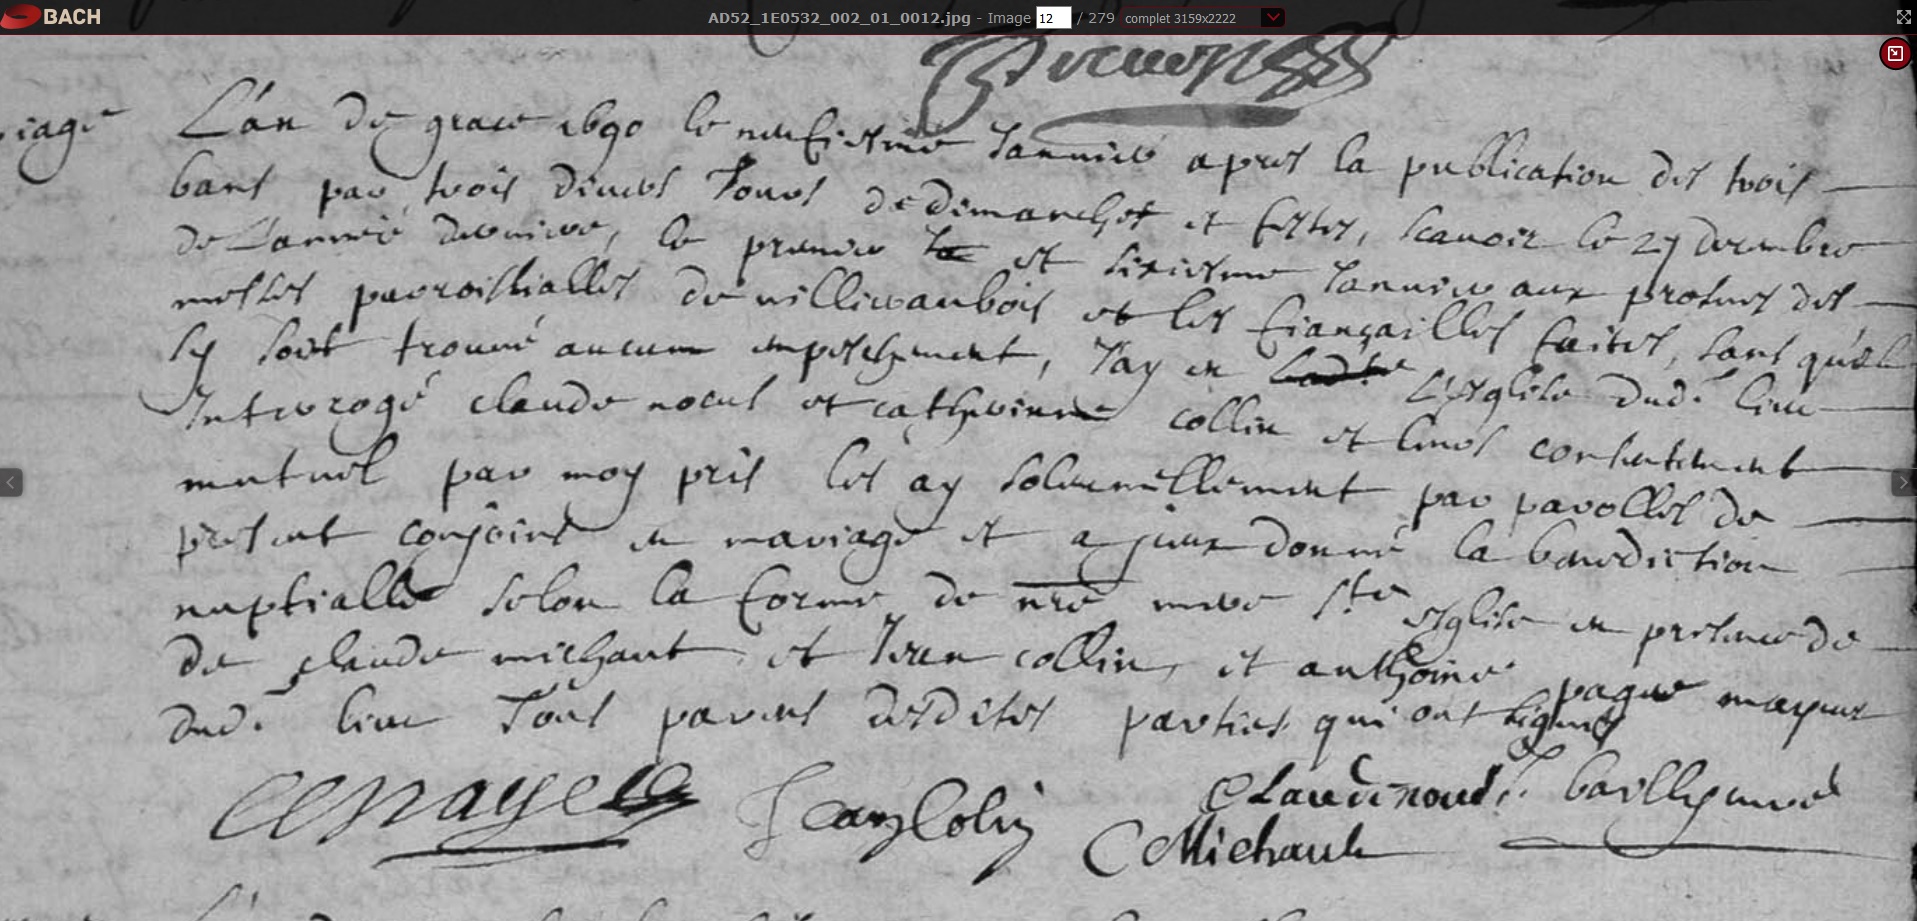 BACH
AD52_1E0532_002_01_0012.jpg - Image 12 / 279 complet 3159x2222
L'an de grace 1690 le neufiesme Januier apres la publication des trois
bans par trois diuers Jours de dimanches et festes, scauoir le 27 decembre
de L'année derniere, le premier et sixiesme Januier aux prosnes des
messes parroissialles de uilliersaubois et les fiançailles faites, sans qu'il
sy soit trouué aucun empeschement, J'ay en L'esglise dud. lieu
Interrogé claude noeul et catherinne collin et leurs consentement
mutuel par moy pris les ay solemnellement par parolles de
present conjoins en mariage et a jceux donné la benediction
nuptialle selon la forme de nre mere ste esglise en presence de
de claude michaut et Jean collin, et anthoine mayeur
dud. lieu Tous parens desdites parties qui ont signés
Jean Colin
C Michault